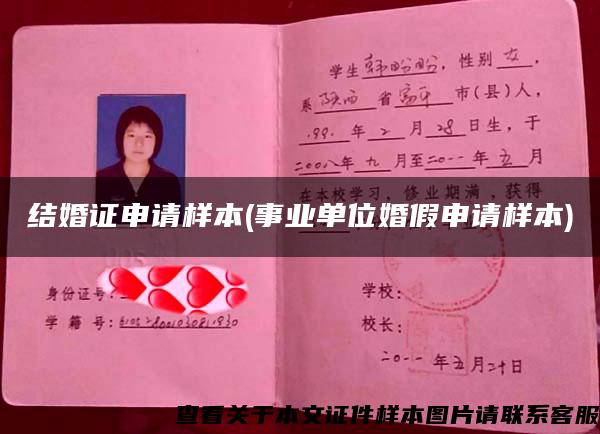 学生韩盼盼，性别女，
系陕西省富平市(县)人，
199 年2月28日生，于
二00八年九月至二0一一年五月
在本校学习，修业期满，获得
结婚证申请样本(事业单位婚假申请样本)
身份证号：
学籍号：
学校：
校长：
二0一一年五月二十日
查看关于本文证件样本图片请联系客服